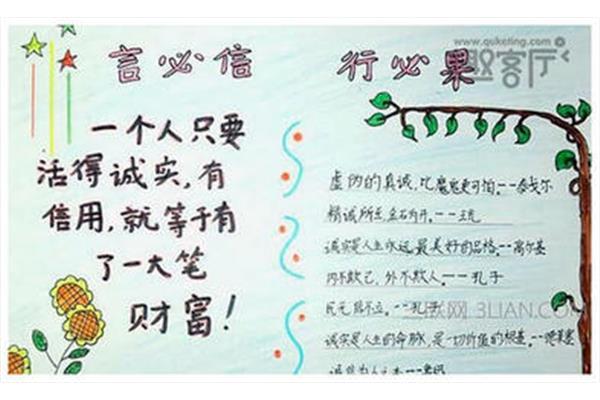 言必信 行必果
www.quketing.com
客厅
一个人只要
活得诚实,有
信用,就等于有
了一大笔
财富!
虚伪的真诚,比魔鬼更可怕。--泰戈尔
精诚所至,金石为开。--王充
诚实是人生永远最美好的品格。--高尔基
内不欺己,外不欺人。--孔子
民无信不立。--孔子
网 3LIAN.COM
诚实是人生的命脉,是一切价值的根基。--德莱塞
诚信为人之本--鲁迅